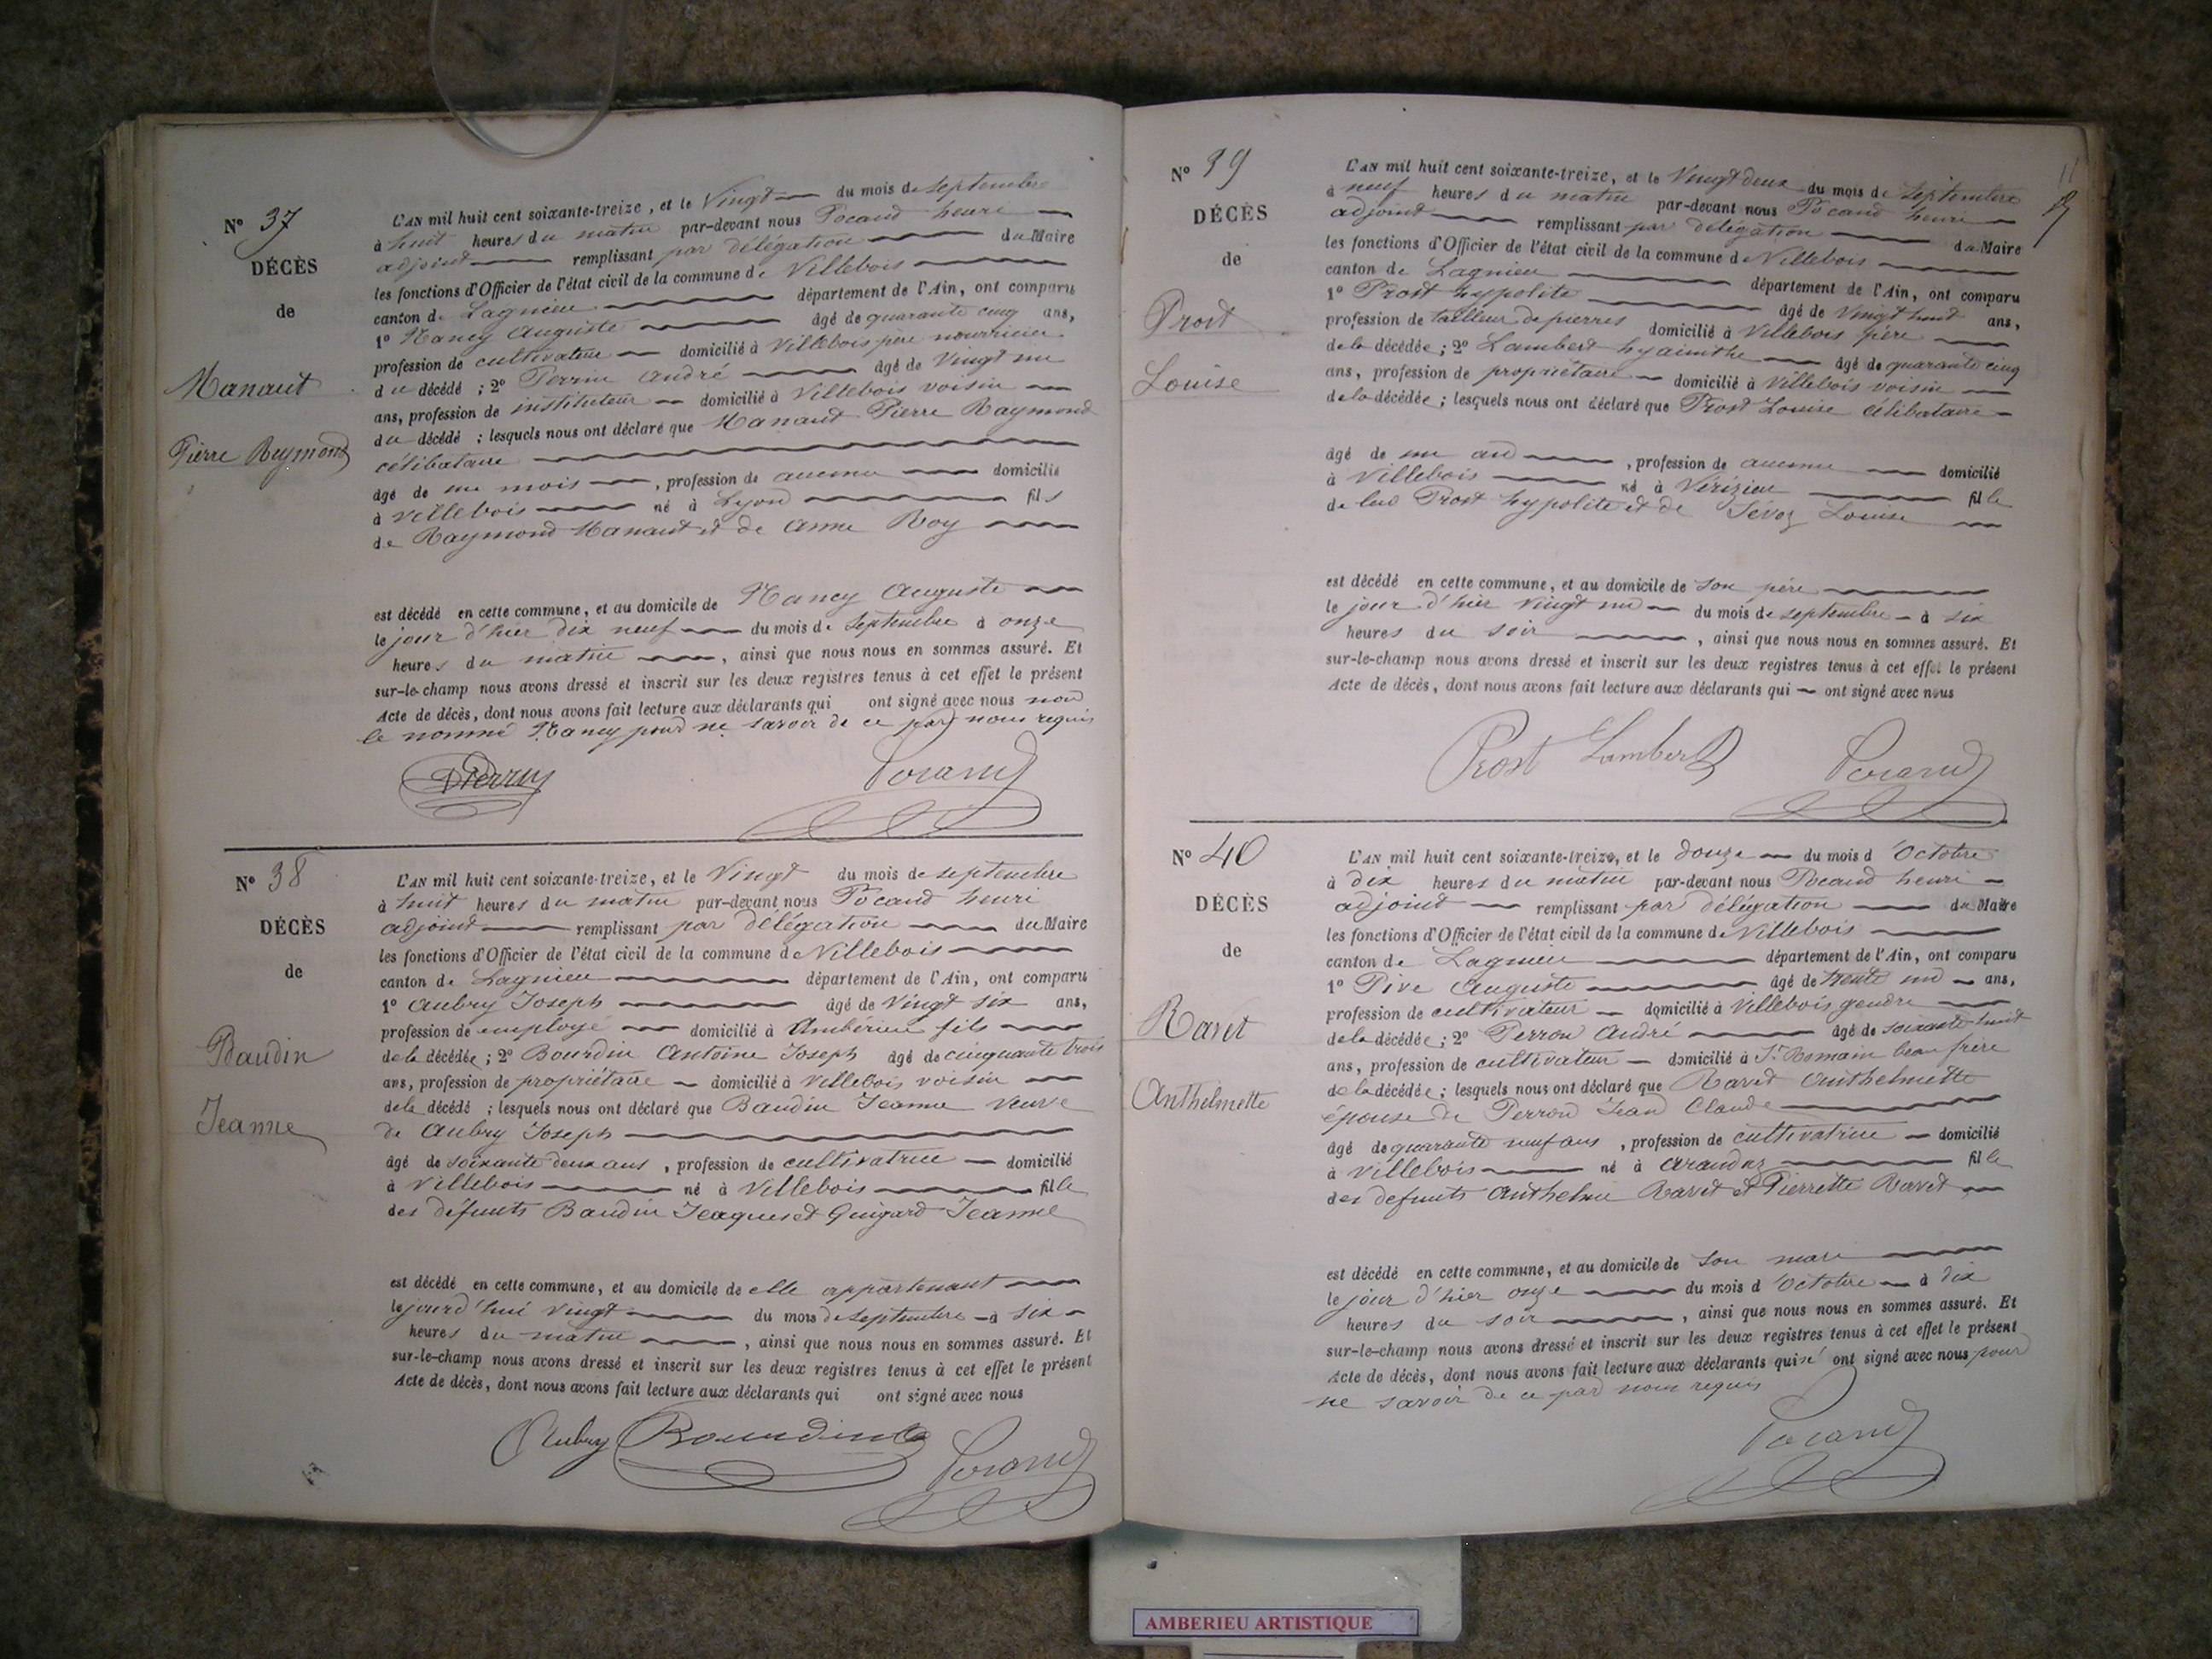 N° 37
DÉCÈS
de
Manaut
Pierre Reymond
L'AN mil huit cent soixante-treize, et le Vingt du mois de septembre
à huit heures du matin par-devant nous Pocaud henri
adjoint remplissant par délégation du Maire
les fonctions d'Officier de l'état civil de la commune de Villebois
canton de Lagnieu département de l'Ain, ont comparu
1° Nancy Auguste âgé de quarante cinq ans,
profession de cultivateur domicilié à Villebois père nourricier
du décédé ; 2° Perrin André âgé de Vingt un
ans, profession de instituteur domicilié à Villebois voisin
du décédé ; lesquels nous ont déclaré que Manaut Pierre Raymond
célibataire
âgé de un mois , profession de aucune domicilié
à Villebois né à Lyon fils
de Raymond Manaut et de Anne Roy
est décédé en cette commune, et au domicile de Nancy Auguste
le jour d'hier dix neuf du mois de Septembre à onze
heures du matin , ainsi que nous nous en sommes assuré. Et
sur-le-champ nous avons dressé et inscrit sur les deux registres tenus à cet effet le présent
Acte de décès, dont nous avons fait lecture aux déclarants qui ont signé avec nous non
le nommé Nancy pour ne savoir de ce par nous requis
Pocaud
N° 38
DÉCÈS
de
Baudin
Jeanne
L'AN mil huit cent soixante-treize, et le Vingt du mois de septembre
à huit heures du matin par-devant nous Pocaud henri
adjoint remplissant par délégation du Maire
les fonctions d'Officier de l'état civil de la commune de Villebois
canton de Lagnieu département de l'Ain, ont comparu
1° Aubry Joseph âgé de Vingt six ans,
profession de employé domicilié à Ambérieu fils
de la décédée ; 2° Bourdin Antoine Joseph âgé de cinquante trois
ans, profession de propriétaire domicilié à Villebois voisin
de la décédé ; lesquels nous ont déclaré que Baudin Jeanne veuve
de Aubry Joseph
âgé de soixante deux ans , profession de cultivatrice domicilié
à Villebois né à Villebois fille
des défunts Baudin Jeaques et Guigard Jeanne
est décédé en cette commune, et au domicile de elle appartenant
le jourd'hui vingt du mois de septembre à six
heures du matin , ainsi que nous nous en sommes assuré. Et
sur-le-champ nous avons dressé et inscrit sur les deux registres tenus à cet effet le présent
Acte de décès, dont nous avons fait lecture aux déclarants qui ont signé avec nous
Aubry Bourdin Pocaud
N° 39
DÉCÈS
de
Prost
Louise
11
L'AN mil huit cent soixante-treize, et le Vingt deux du mois de Septembre
à neuf heures du matin par-devant nous Pocaud henri
adjoint remplissant par délégation du Maire
les fonctions d'Officier de l'état civil de la commune de Villebois
canton de Lagnieu département de l'Ain, ont comparu
1° Prost hypolite âgé de Vingt huit ans,
profession de tailleur de pierres domicilié à Villebois père
de la décédée ; 2° Lambert hyacinthe âgé de quarante cinq
ans, profession de propriétaire domicilié à Villebois voisin
de la décédée ; lesquels nous ont déclaré que Prost Louise célibataire
âgé de un an , profession de aucune domicilié
à Villebois né à Vérizieu fille
de lui Prost hypolite et de Sevoz Louise
est décédé en cette commune, et au domicile de son père
le jour d'hier vingt un du mois de septembre à six
heures du soir , ainsi que nous nous en sommes assuré. Et
sur-le-champ nous avons dressé et inscrit sur les deux registres tenus à cet effet le présent
Acte de décès, dont nous avons fait lecture aux déclarants qui ont signé avec nous
Prost Lambert Pocaud
N° 40
DÉCÈS
de
Ravet
Anthelmette
L'AN mil huit cent soixante-treize, et le douze du mois d'Octobre
à dix heures du matin par-devant nous Pocaud henri
adjoint remplissant par délégation du Maire
les fonctions d'Officier de l'état civil de la commune de Villebois
canton de Lagnieu département de l'Ain, ont comparu
1° Pive Auguste âgé de trente un ans,
profession de cultivateur domicilié à Villebois gendre
de la décédée ; 2° Perron André âgé de soixante huit
ans, profession de cultivateur domicilié à St Romain beau frère
de la décédée ; lesquels nous ont déclaré que Ravet Anthelmette
épouse de Perron Jean Claude
âgé de quarante neuf ans , profession de cultivatrice domicilié
à Villebois né à Arandaz fille
des defunts Anthelme Ravet et Pierrette Ravet
est décédé en cette commune, et au domicile de son mari
le jour d'hier onze du mois d'Octobre à dix
heures du soir , ainsi que nous nous en sommes assuré. Et
sur-le-champ nous avons dressé et inscrit sur les deux registres tenus à cet effet le présent
Acte de décès, dont nous avons fait lecture aux déclarants qui n'ont signé avec nous pour
ne savoir de ce par nous requis
Pocaud
AMBERIEU ARTISTIQUE